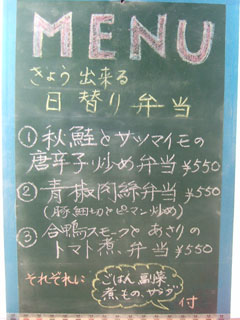 MENU
きょう出来る
日替り弁当
①秋鮭とサツマイモの
唐辛子炒め弁当 ¥550
②青椒肉絲弁当 ¥550
(豚細切とピーマン炒め)
③合鴨スモークとあさりの
トマト煮弁当 ¥550
それぞれに
ごはん 副菜
煮もの、サラダ
付